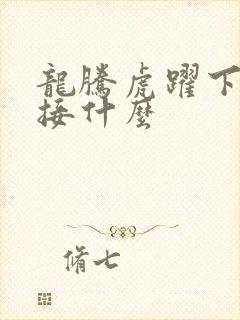 龍騰虎躍下
接什麼
脩七